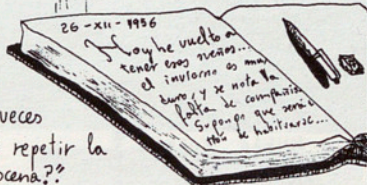 26-XII-1956
Hoy he vuelto a
tener esos sueños...
el invierno es muy
duro, y se nota la
falta de compañía.
Supongo que será
de habituarse...
ueces
repetir la
ocena??"